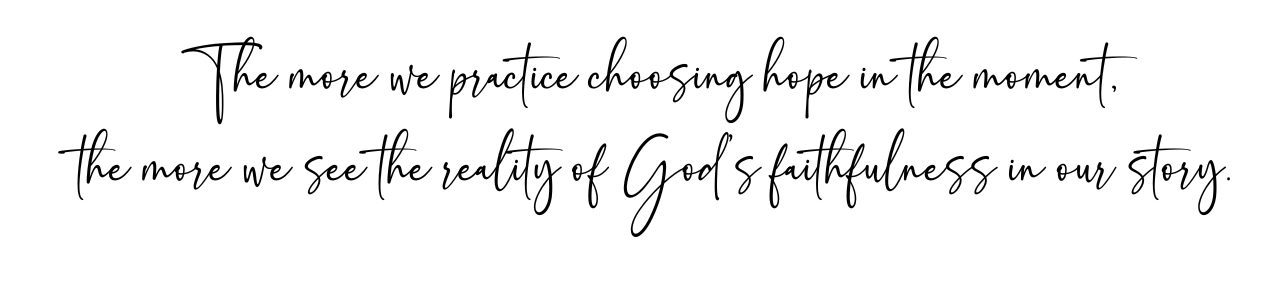 The more we practice choosing hope in the moment,
the more we see the reality of God's faithfulness in our story.